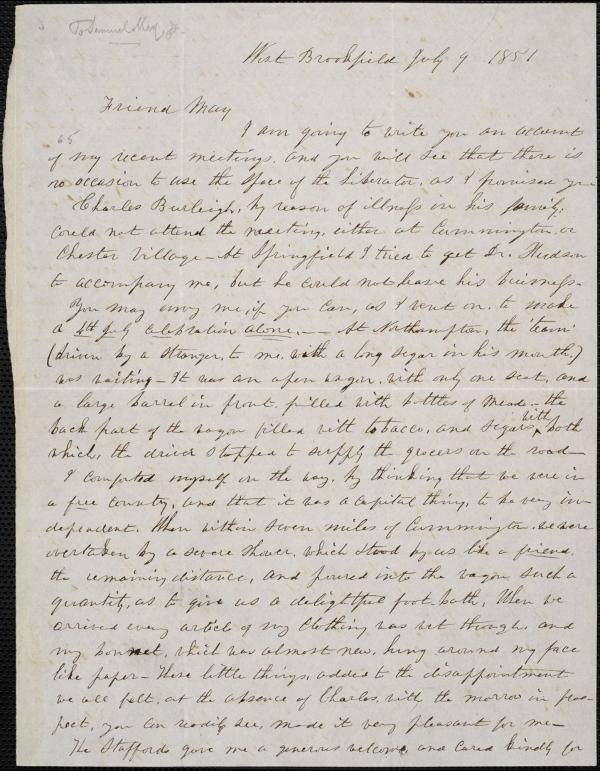 To Samuel May, Jr.
West Brookfield July 9 1851
Friend May
65
I am going to write you an account
of my recent meetings, and you will see that there is
no occasion to use the space of the Liberator, as I promised you
Charles Burleigh, by reason of illness in his family,
could not attend the meeting, either at Cummington, or
Chester Village - At Springfield I tried to get Dr. Hudson
to accompany me, but he could not leave his business.
You may envy me, if you can, as I went on to make
a 4th July celebration alone. - At Northampton, the 'team'
(driven by a stranger, to me, with a long segar in his mouth,)
was waiting - It was an open wagon, with only one seat, and
a large barrel in front, filled with bottles of Mead - the
back part of the wagon filled with tobacco, and segars, with both
which, the driver stopped to supply the grocers on the road -
I comforted myself on the way, by thinking that we were in
a free country, and that it was a capital thing, to be very in-
dependent. When within seven miles of Cummington, we were
overtaken by a severe shower, which stood by us like a friend,
the remaining distance, and poured into the wagon such a
quantity, as to give us a delightful foot-bath. When we
arrived every article of my clothing was wet through, and
my bonnet, which was almost new, hung around my face
like paper - These little things, added to the disappointment
we all felt, at the absence of Charles, with the morrow in pros-
pect, you can readily see, made it very pleasant for me -
The Staffords gave me a generous welcome, and cared kindly for